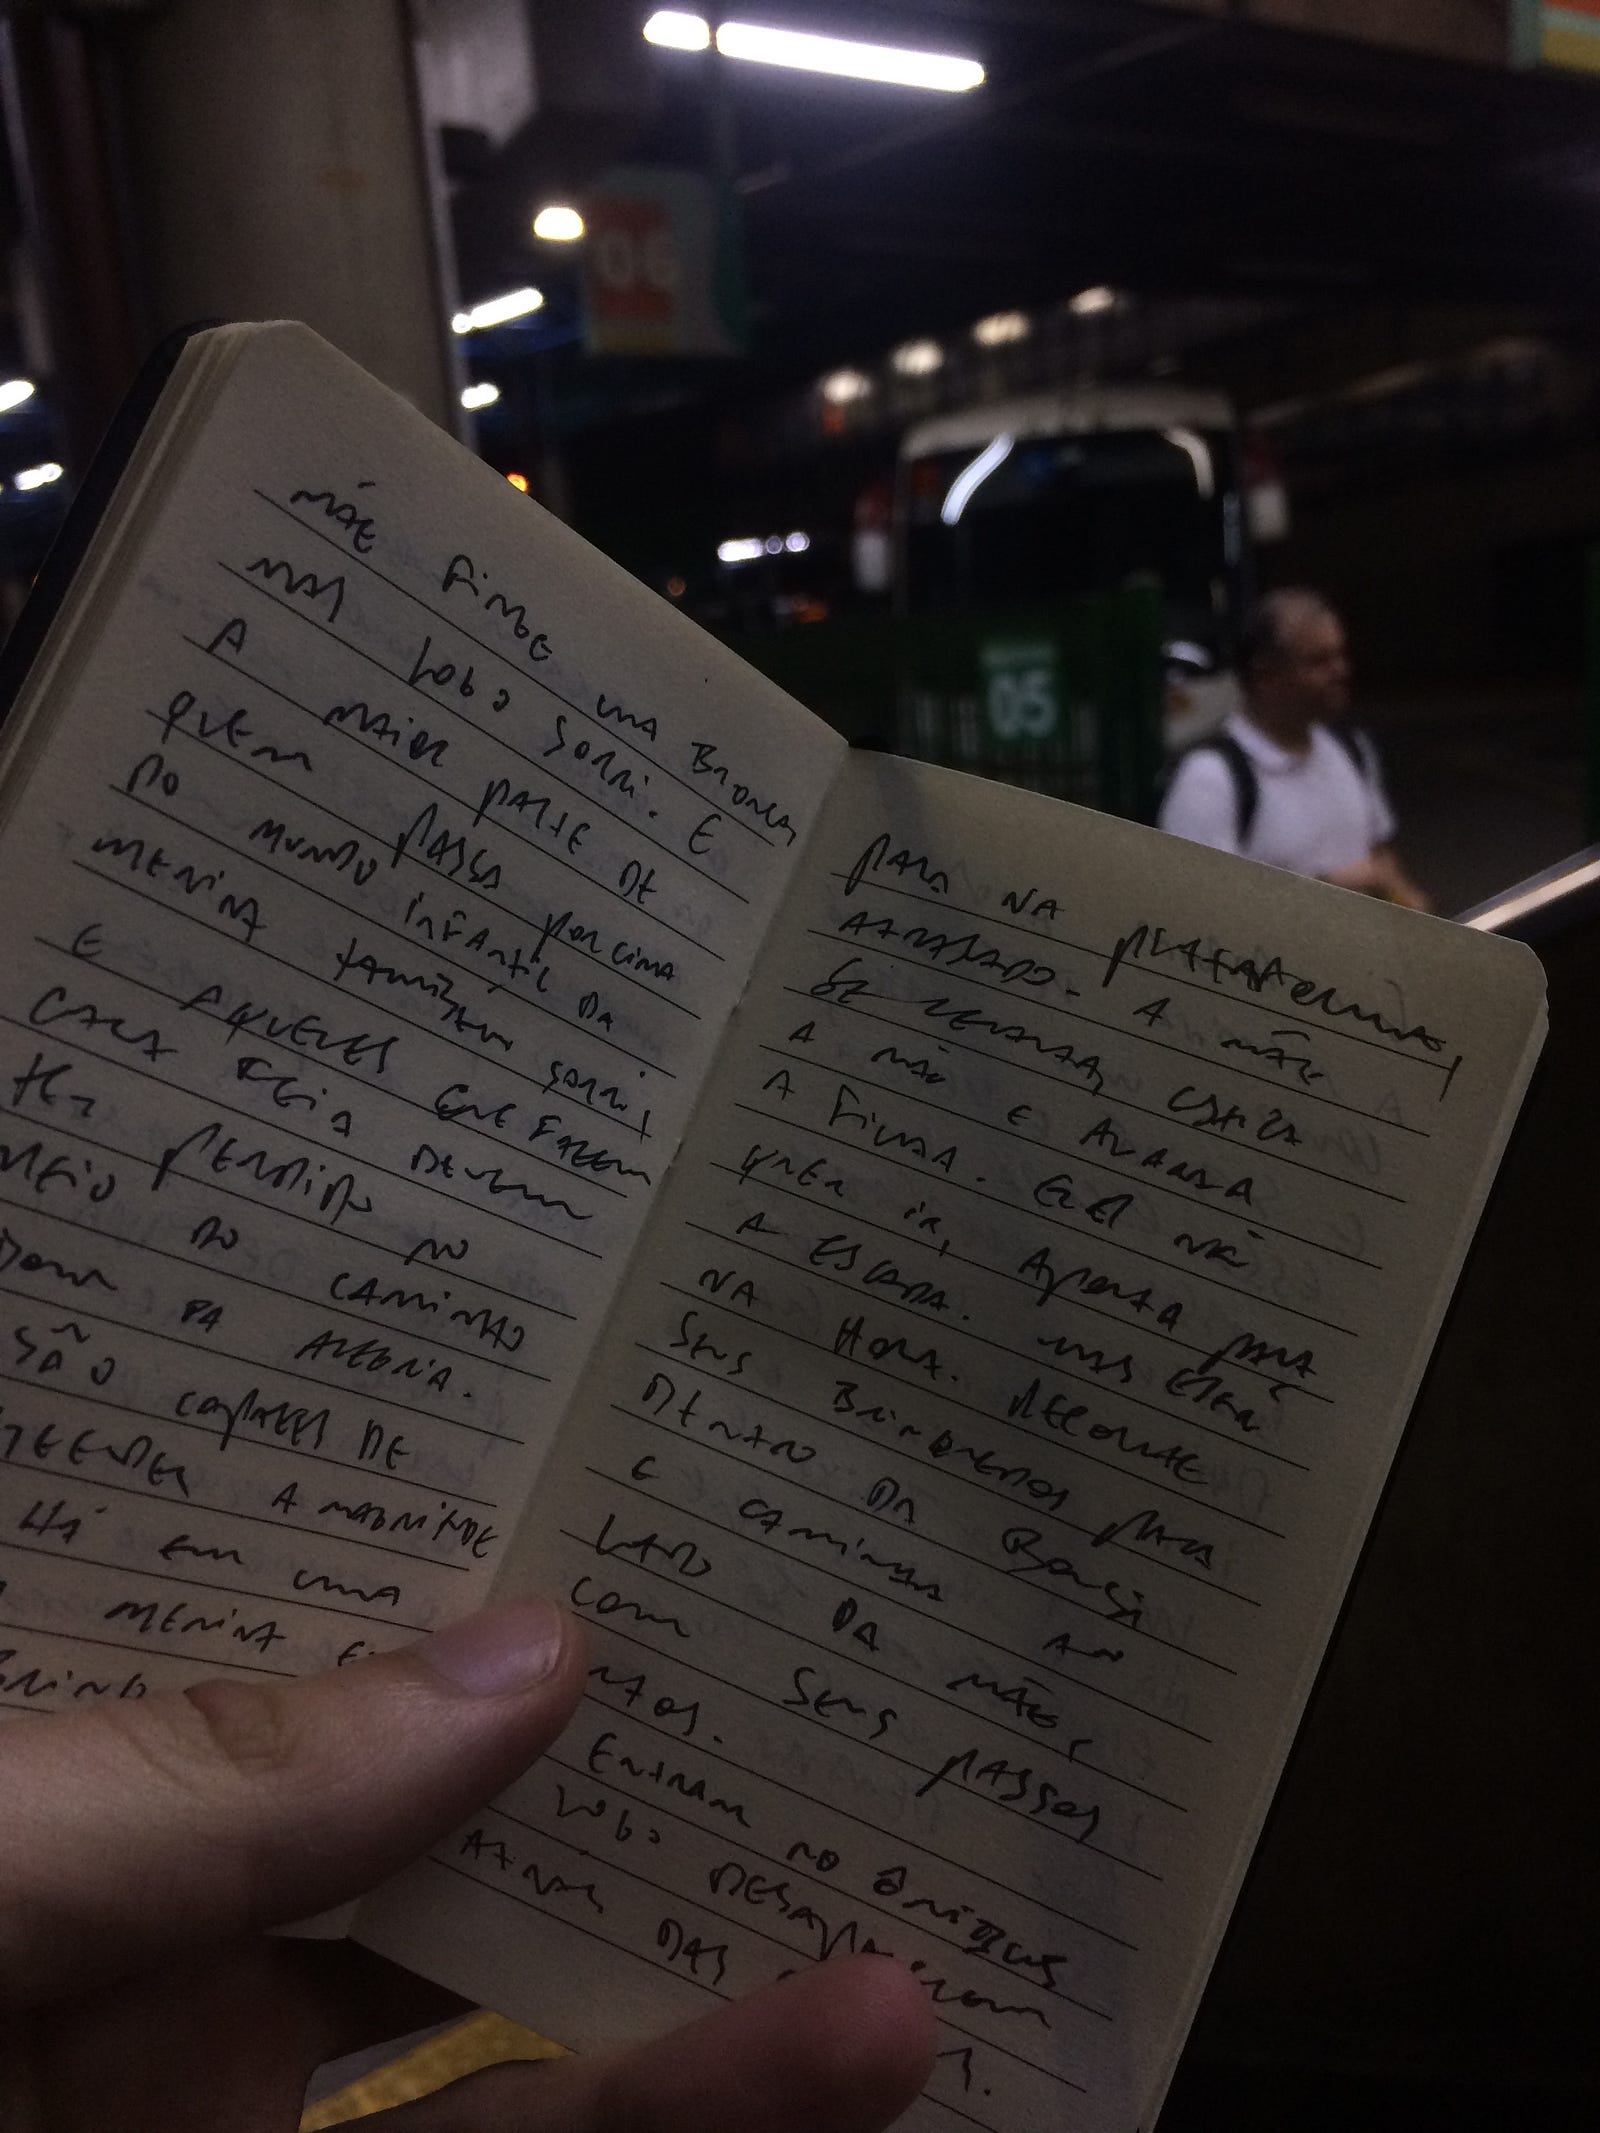 06
05
MÃE FINGE UMA BRONCA,
MAS LOGO SORRI. E
A MAIOR PARTE DE
QUEM PASSA POR CIMA
DO MUNDO INFANTIL DA
MENINA TAMBÉM SORRI,
E AQUELES QUE FAZEM
CARA FEIA DEVEM
TER PERDIDO NO
MEIO DO CAMINHO
DOM DA ALEGRIA.
SÃO CAPAZES DE
A MAGNITUDE
HÁ EM UMA
MENINA
PARA NA PLATAFORMA,
ATRASADO. A MÃE
SE LEVANTA, ESTICA
A MÃO E AVANÇA
A FILHA. ELA NÃO
QUER IR, APONTA PARA
A ESCADA. MAS ESTÁ
NA HORA. RECOLHE
SEUS BRINQUEDOS PARA
DENTRO DA BOLSA
E CAMINHA AO
LADO DA MÃE,
COM SEUS PASSOS
ENTRAM NO ÔNIBUS
LOGO DESAPARECEM
ATRÁS DAS